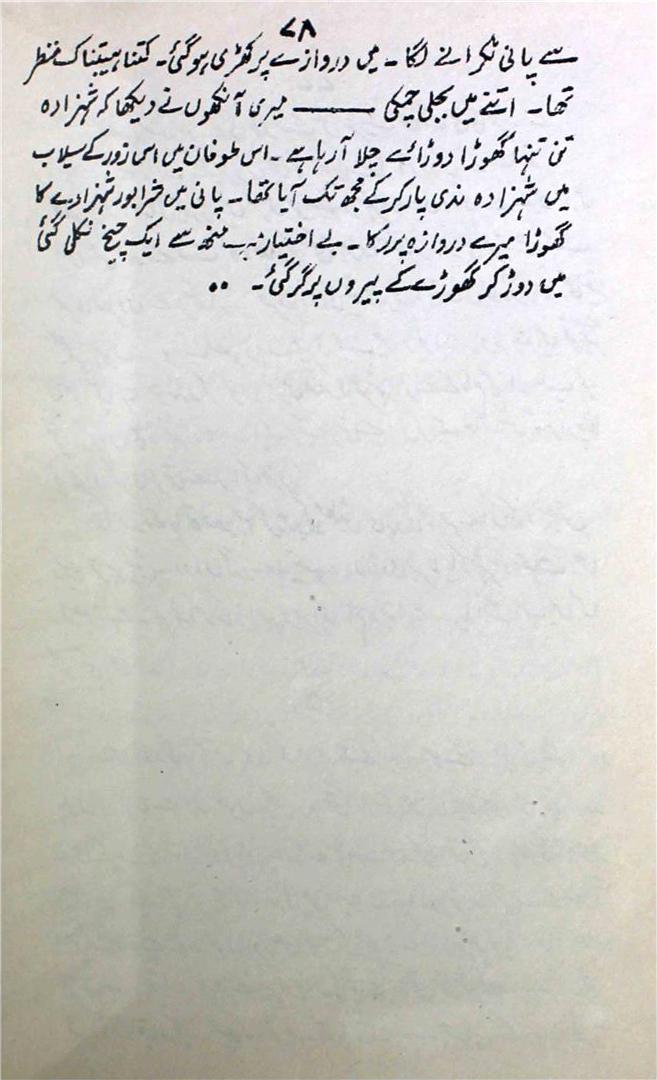 ۷۸
سے پانی ٹکرانے لگا۔ میں دروازے پر کھڑی ہوگئی۔ کتنا ہیبتناک منظر
تھا۔ اتنے میں بجلی چمکی ——— میری آنکھوں نے دیکھا کہ شہزادہ
تن تنہا گھوڑا دوڑائے چلا آرہا ہے۔ اس طوفان میں اس زور کے سیلاب
میں شہزادہ ندی پار کرکے مجھ تک آیا تھا۔ پانی میں شرابور شہزادے کا
گھوڑا میرے دروازہ پر رکا۔ بے اختیار منھ سے ایک چیخ نکلی گئی
میں دوڑ کر گھوڑے کے پیروں پر گر گئی۔ ۰۰